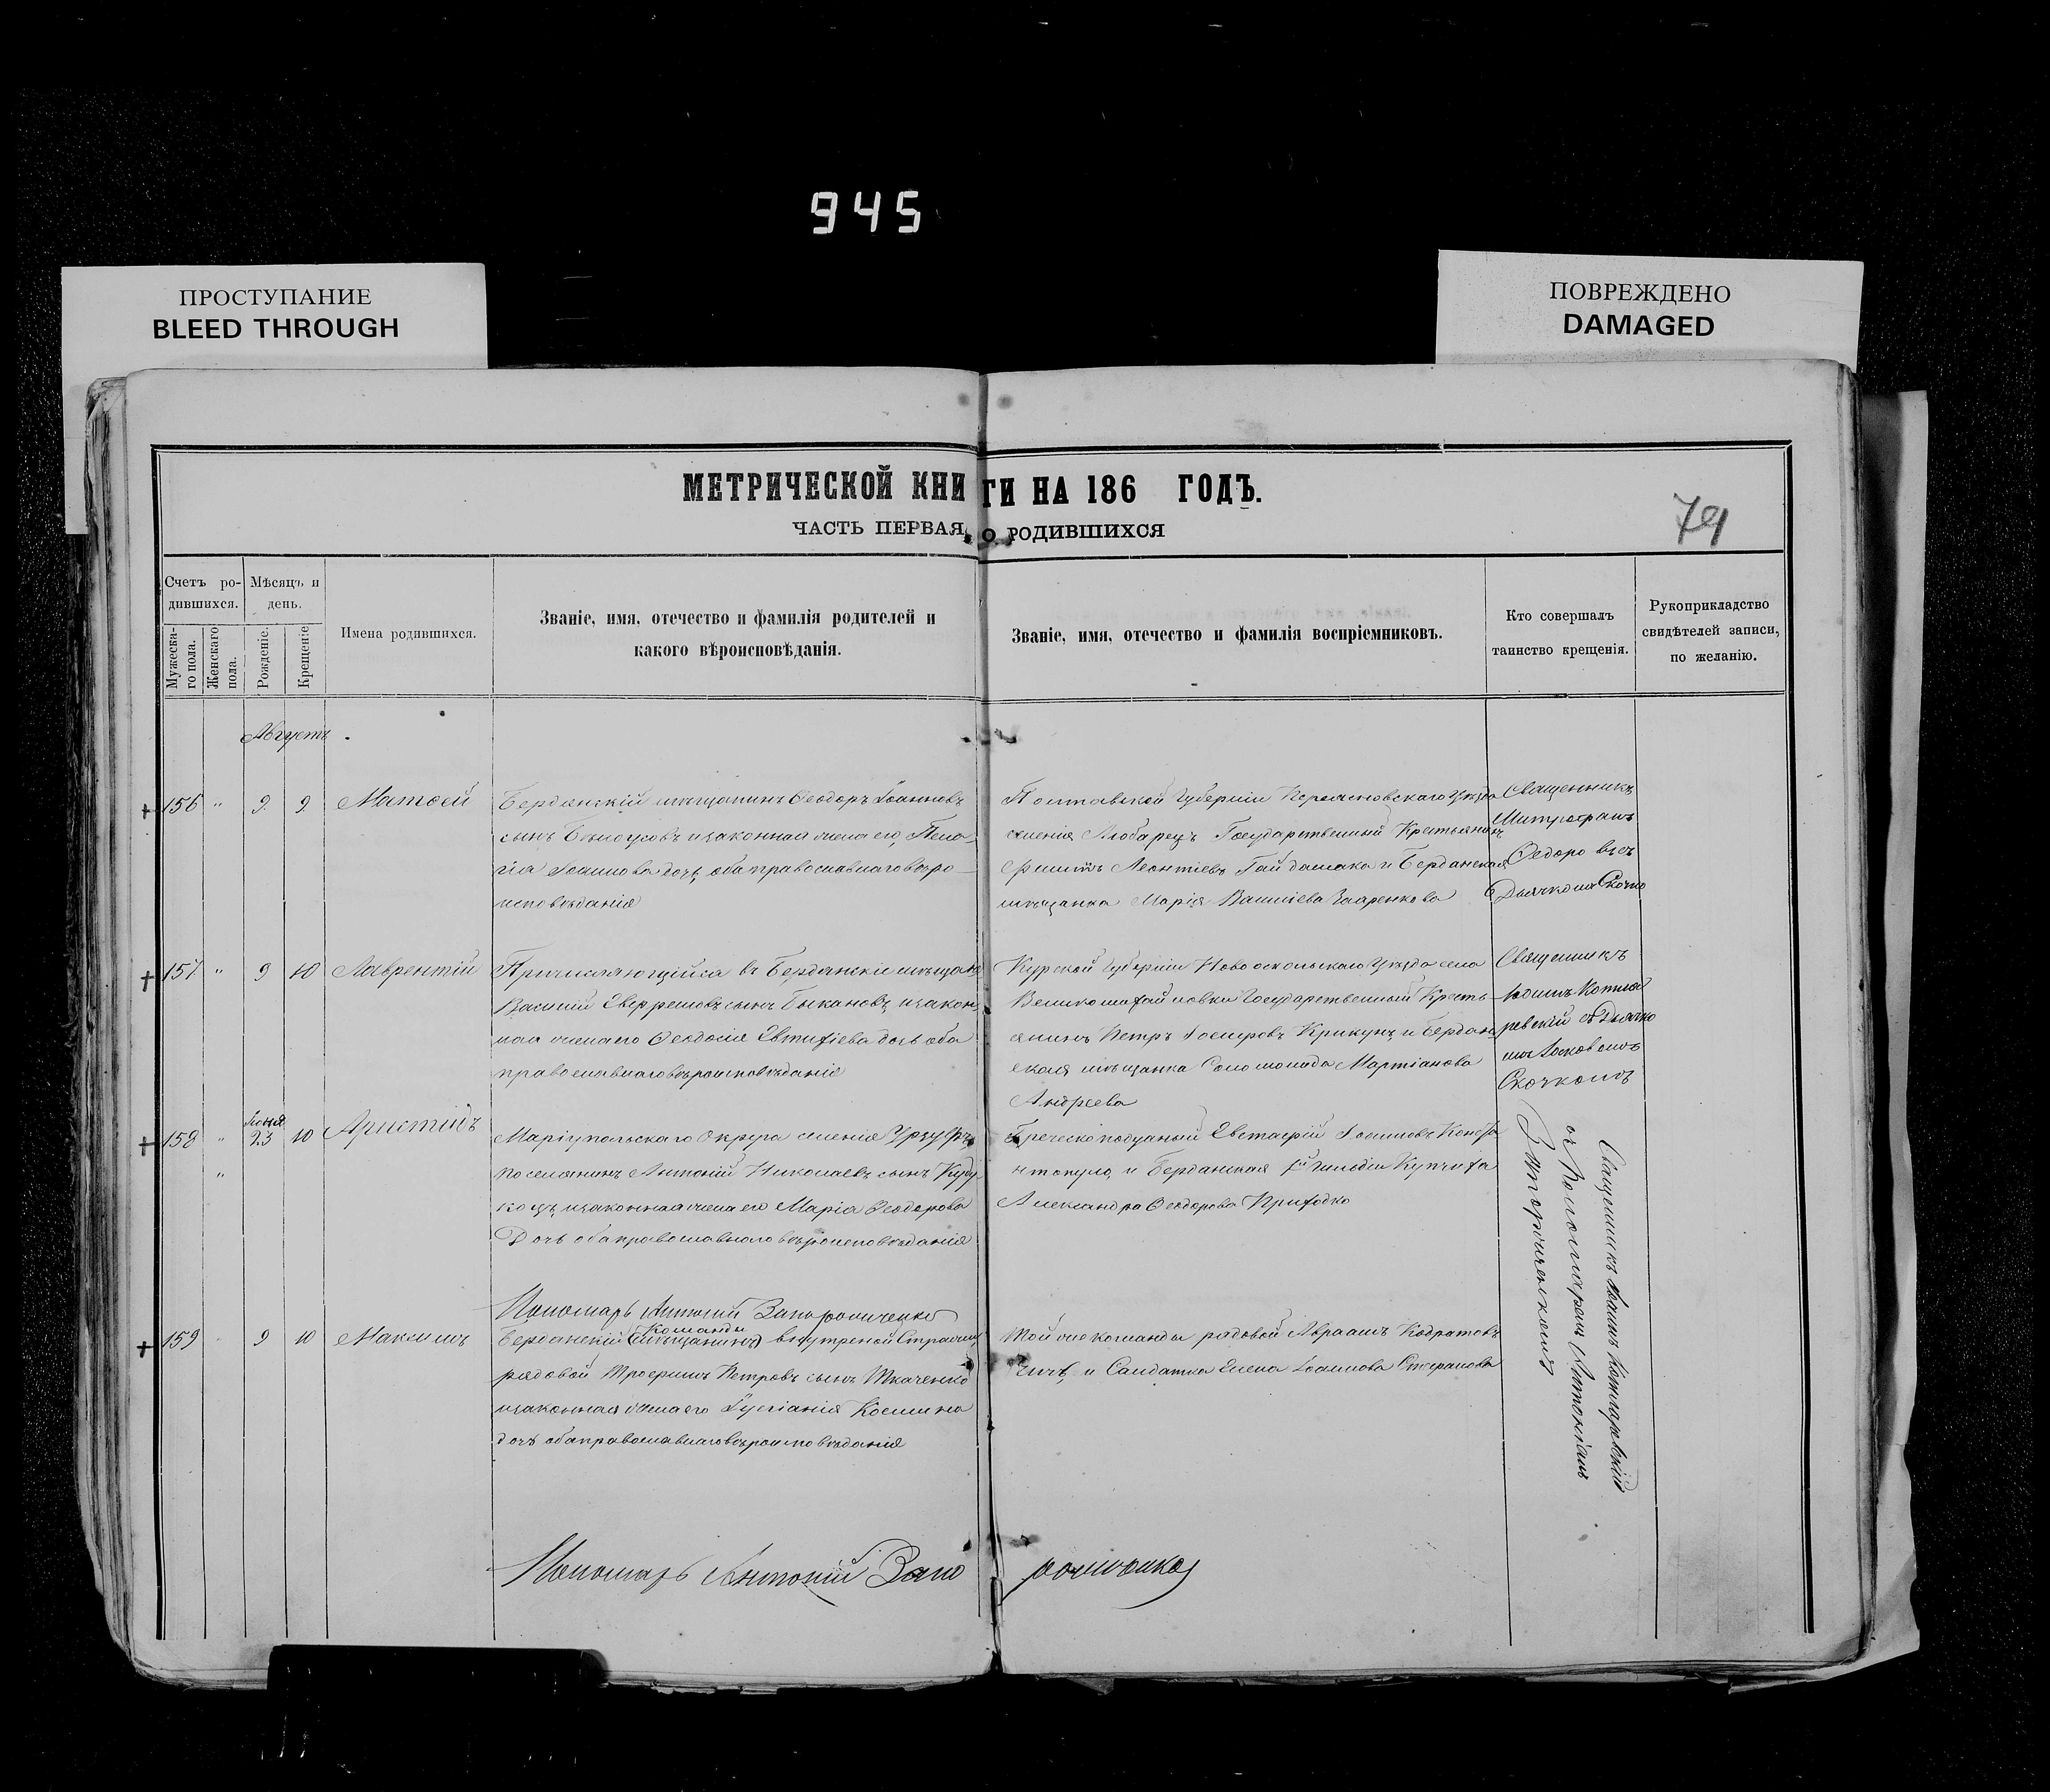 945
ПРОСТУПАНИЕ
BLEED THROUGH
ПОВРЕЖДЕНО
DAMAGED
МЕТРИЧЕСКОЙ КНИГИ НА 186 ГОДЪ.
79
ЧАСТЬ ПЕРВАЯ, О РОДИВШИХСЯ
Счетъ ро-
дившихся.
Мужеска-
го пола.
Женскаго
пола.
Мѣсяцъ и
день.
Рожденіе.
Крещеніе
Имена родившихся.
Званіе, имя, отечество и фамилія родителей и
какого вѣроисповѣданія.
Званіе, имя, отечество и фамилія воспріемниковъ.
Кто совершалъ
таинство крещенія.
Рукоприкладство
свидѣтелей записи,
по желанію.
Августъ
156 " 9 9 Матѳей
Бердянскій мѣщанинъ Ѳеодоръ Іоанновъ
сынъ Бѣлоусовъ и законная жена его, Пела-
гія Іоаннова дочь, оба православнаго вѣро-
исповѣданія
Полтавской Губерніи Уѣзда
селенія Государственный Крестьянинъ
Леонтіевъ Гайдамака и Бердянская
мѣщанка Марія
Священникъ
Митрофанъ
Ѳедоровъ съ
Дьячкомъ Скочко
157 " 9 10 Лаврентій
Причисляющійся въ Бердянскіе мѣщане
Василій сынъ Быкановъ, и закон-
ная жена его Ѳеодосія Евтихіева дочь оба
православнаго вѣроисповѣданія
Курской Губерніи Новооскольскаго Уѣзда села
Великомихайловки Государственный Кресть-
янинъ Петръ Іосифовъ Крикунъ, и Бердян-
ская мѣщанка Соломонида Мартіанова
Андреева
Священникъ
Іоаннъ Котля-
ревскій съ Дьячко
мъ Яковомъ
Скочкомъ
158 " Іюня 23 10 Аристидъ
"
Маріупольскаго Округа селенія Урзуфъ
поселянинъ Антоній Николаевъ сынъ
и законная жена его Марія Ѳеодорова
Дочь оба православнаго вѣроисповѣданія
Греческоподданый Евстафій Іоанновъ
и Бердянская гильдіи Купчиха
Александра Ѳеодорова Приходко
Священникъ Іоаннъ Котляревскій
съ Пономаремъ Антоніемъ
Запорожченкомъ
Пономарь Антоній Запорожченко
159 9 10 Максимъ
Команды
Бердянскій (мѣщанинъ) внутреной Стражи,
рядовой Трофимъ Петровъ сынъ Ткаченко
и законная жена его Іуліанія Космина
дочь оба православнаго вѣроисповѣданія
Той же команды рядовой Авраамъ Кодратов
и Салдатка Елена Іоаннова Стефанова
Пономарь Антоній Запорожченко